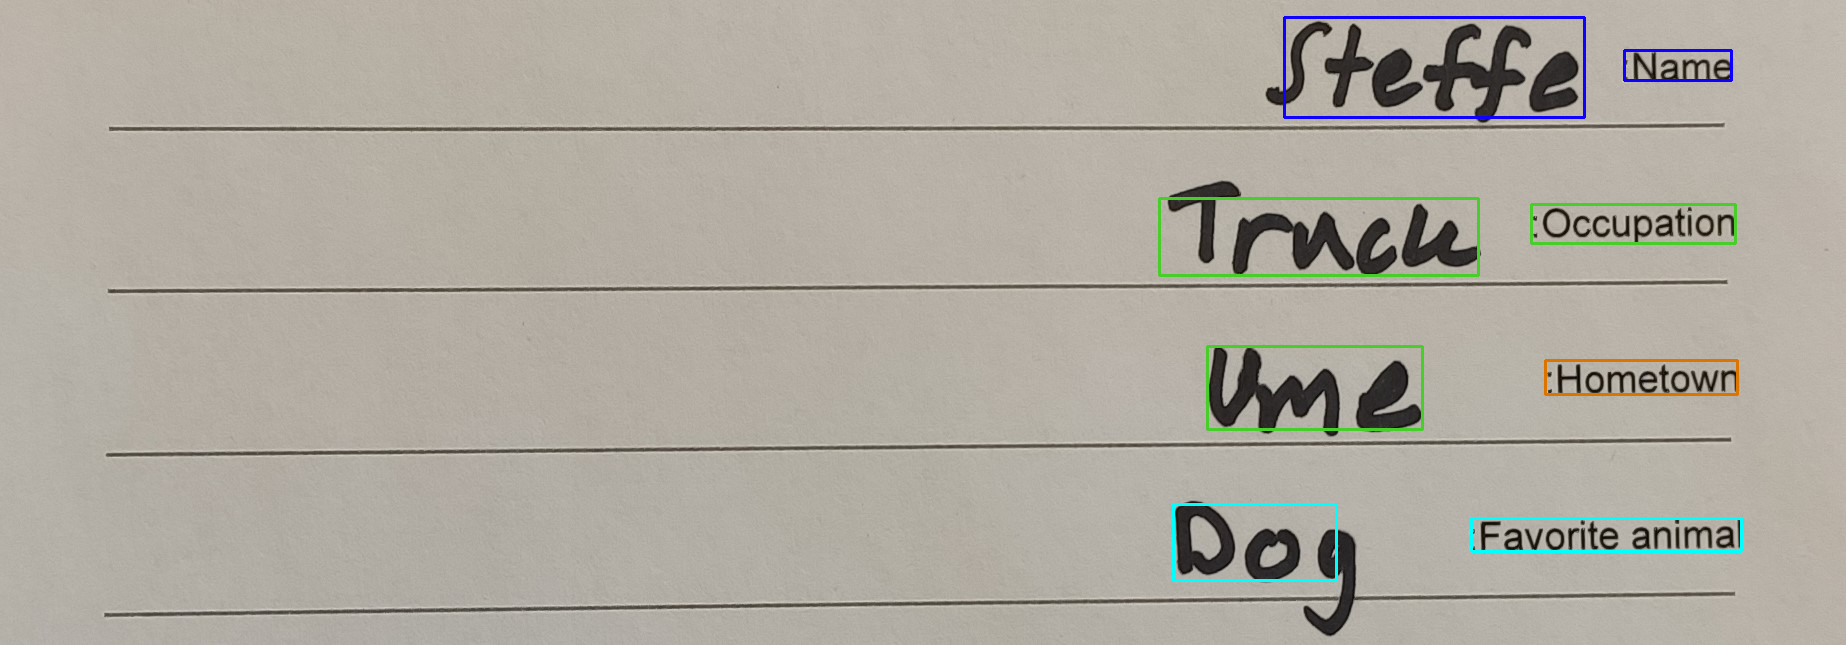 Steffe :Name
Truck :Occupation
Ume :Hometown
Dog :Favorite animal